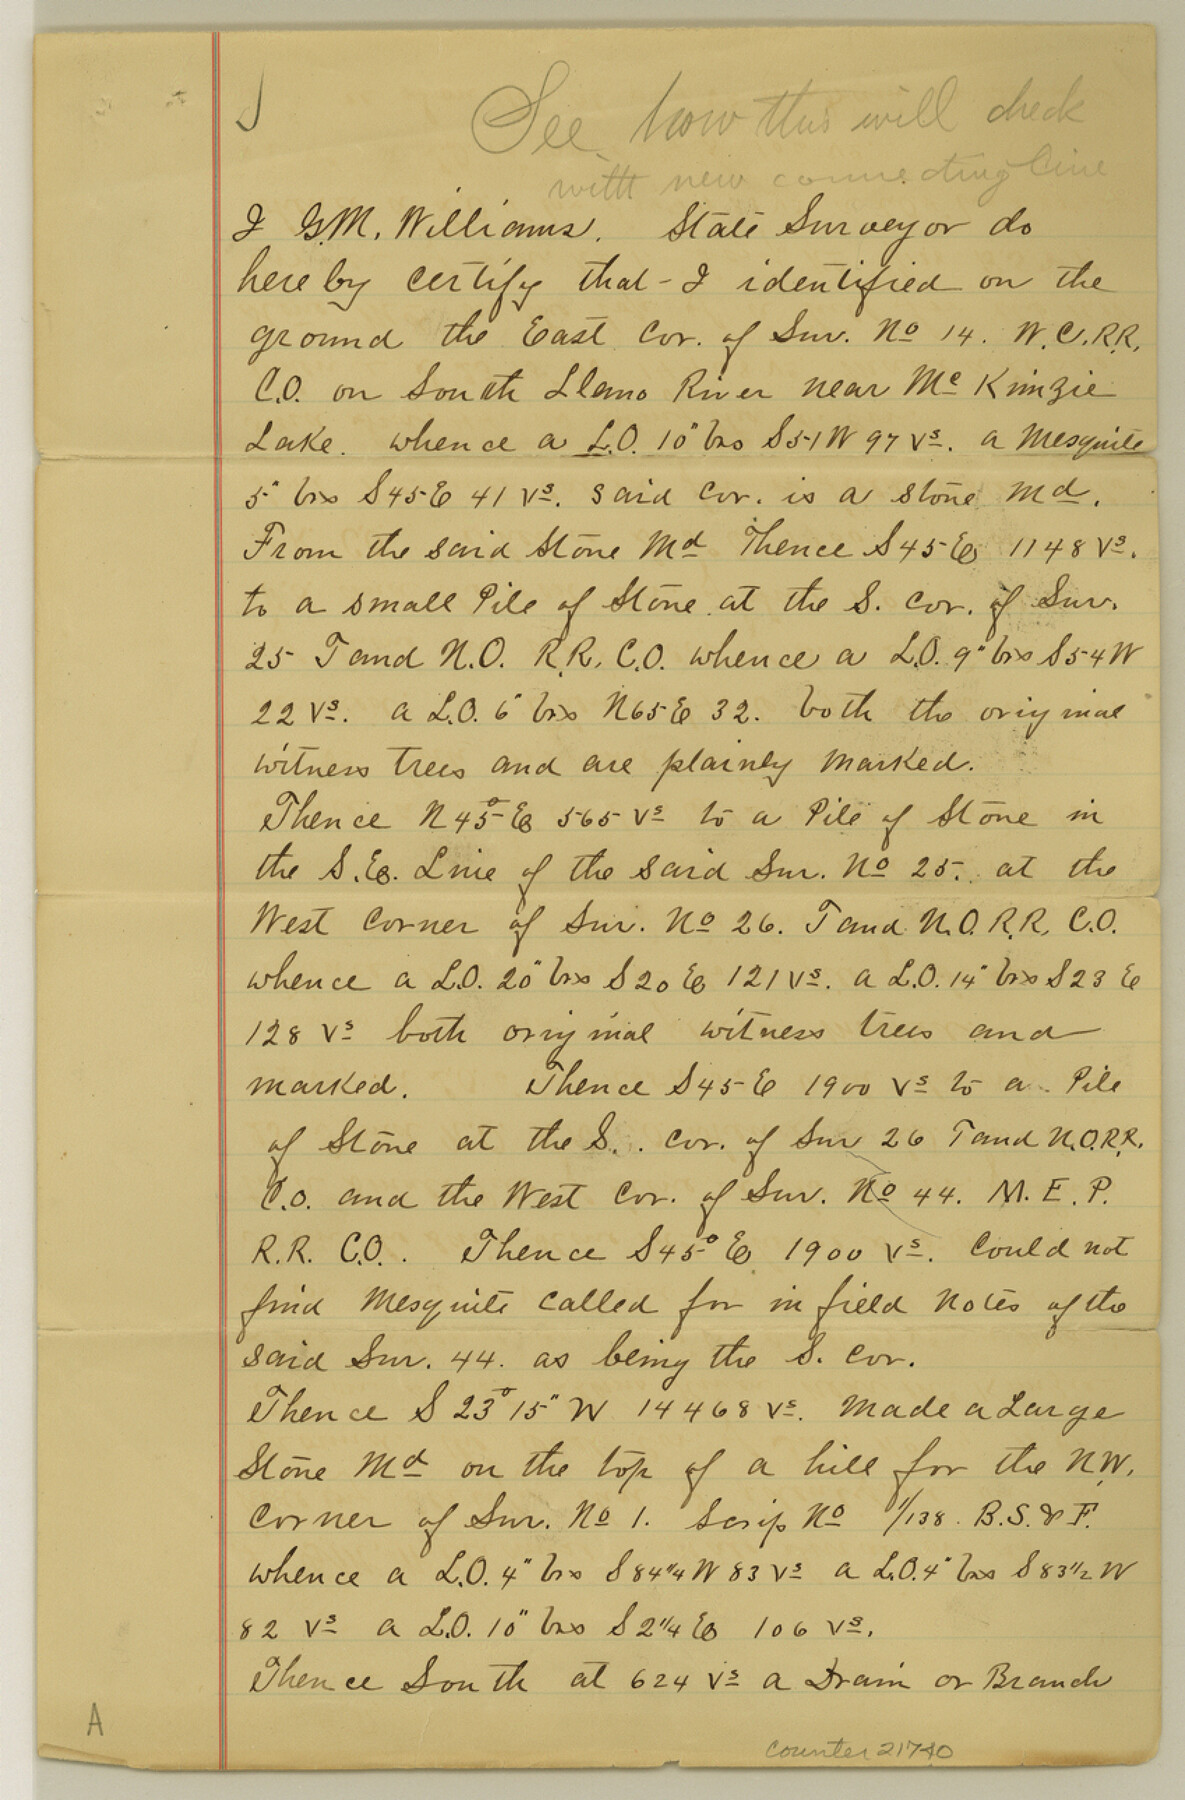 See how this will check
with new connecting line
I G.M. Williams. State Surveyor do
hereby certify that I identified on the
ground the East Cor. of Sur. No 14. W.C.RR.
C.O. on South Llano River near Mc Kinzie
Lake. whence a L.O. 10" brs S51W 97 vs. a Mesquite
5" brs S45E 41 vs. said cor. is a stone Md.
From the said Stone Md Thence S45E 1148 vs.
to a small Pile of Stone at the S. cor. of Sur.
25 T and N.O. R.R. C.O. whence a L.O. 9" brs S54W
22 vs. a L.O. 6" brs N65E 32. both the original
witness trees and are plainly marked.
Thence N45°E 565 vs to a Pile of Stone in
the S.E. Line of the said Sur. No 25. at the
West Corner of Sur. No 26. T and N.O.R.R. C.O.
whence a L.O. 20" brs S20E 121 vs. a L.O. 14" brs S23E
128 vs both original witness trees and
marked. Thence S45E 1900 vs to a Pile
of Stone at the S. cor. of Sur 26 T and N.O.R.R.
C.O. and the West Cor. of Sur. No 44. M.E.P.
R.R. C.O. Thence S45°E 1900 vs. Could not
find Mesquite called for in field notes of the
said Sur. 44. as being the S. cor.
Thence S 23° 15" W 14468 vs. Made a Large
Stone Md on the top of a hill for the N.W.
Corner of Sur. No 1. Scrip No 1/138. B.S.&F.
whence a L.O. 4" brs S84 1/4 W 83 vs a L.O. 4" brs S83 1/2 W
82 vs a L.O. 10" brs S2 1/4 E 106 vs.
Thence South at 624 vs a Drain or Branch
A
counter 21740